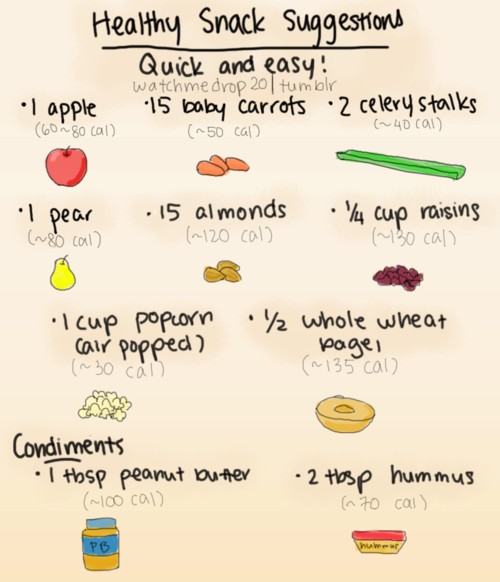 Healthy Snack Suggestions
Quick and easy!
watchmedrop20 | tumblr
• 1 apple
(60~80 cal)
• 15 baby carrots
(~50 cal)
• 2 celery stalks
(~40 cal)
• 1 pear
(~80 cal)
• 15 almonds
(~120 cal)
• 1/4 cup raisins
(~130 cal)
• 1 cup popcorn
(air popped)
(~30 cal)
• 1/2 whole wheat
bagel
(~135 cal)
Condiments
• 1 tbsp peanut butter
(~100 cal)
PB
• 2 tbsp hummus
(~70 cal)
hummus